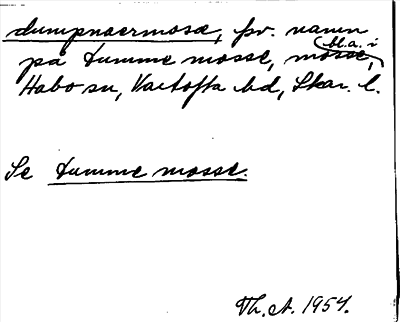 dumpnaermosa, fsv. namn
på tumme mosse, mosse, bl.a. i
Habo sn, Vartofta hd, Skar. l.
Se tumme mosse.
Th. A. 1954.